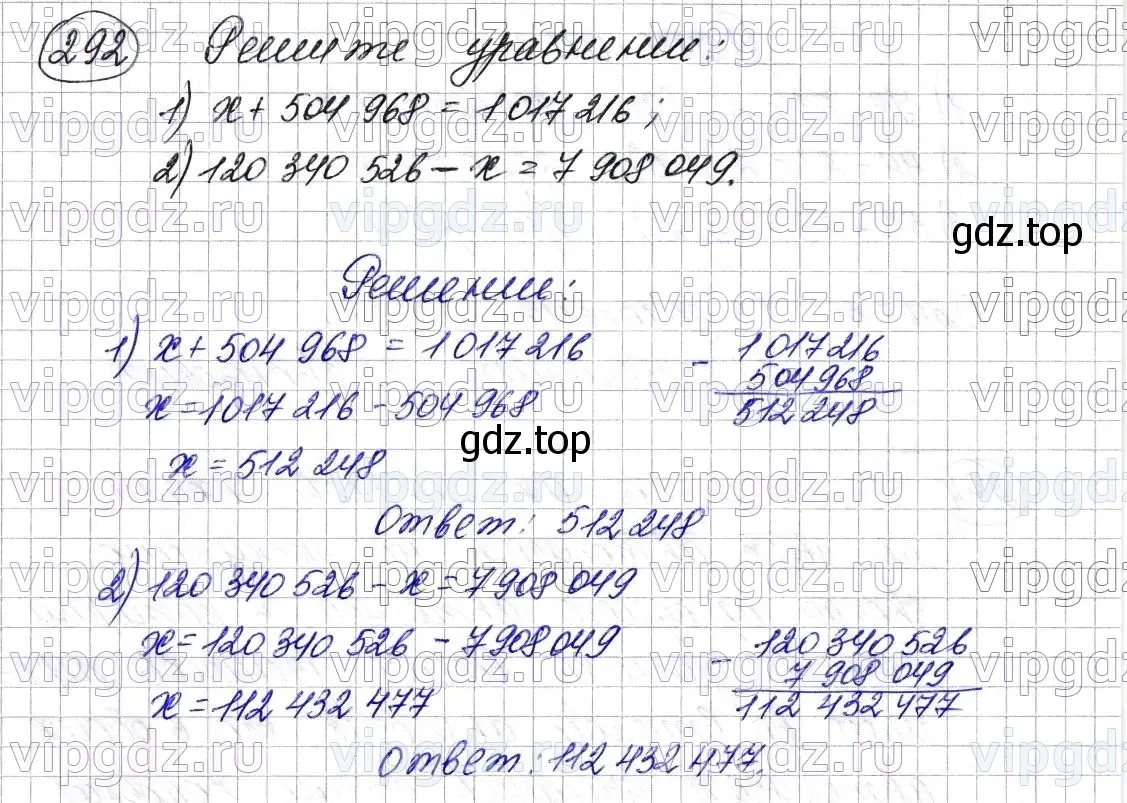 292 Решите уравнении:
1) x + 504 968 = 1 017 216;
2) 120 340 526 - x = 7 908 049.
gdz.top
Решении:
1) x + 504 968 = 1 017 216
- 1 017 216
504 968
512 248
x = 1017 216 - 504 968
x = 512 248
gdz.top
Ответ: 512 248
2) 120 340 526 - x = 7 908 049
x = 120 340 526 - 7 908 049
- 120 340 526
7 908 049
112 432 477
x = 112 432 477
Ответ: 112 432 477.
vipgdz.ru